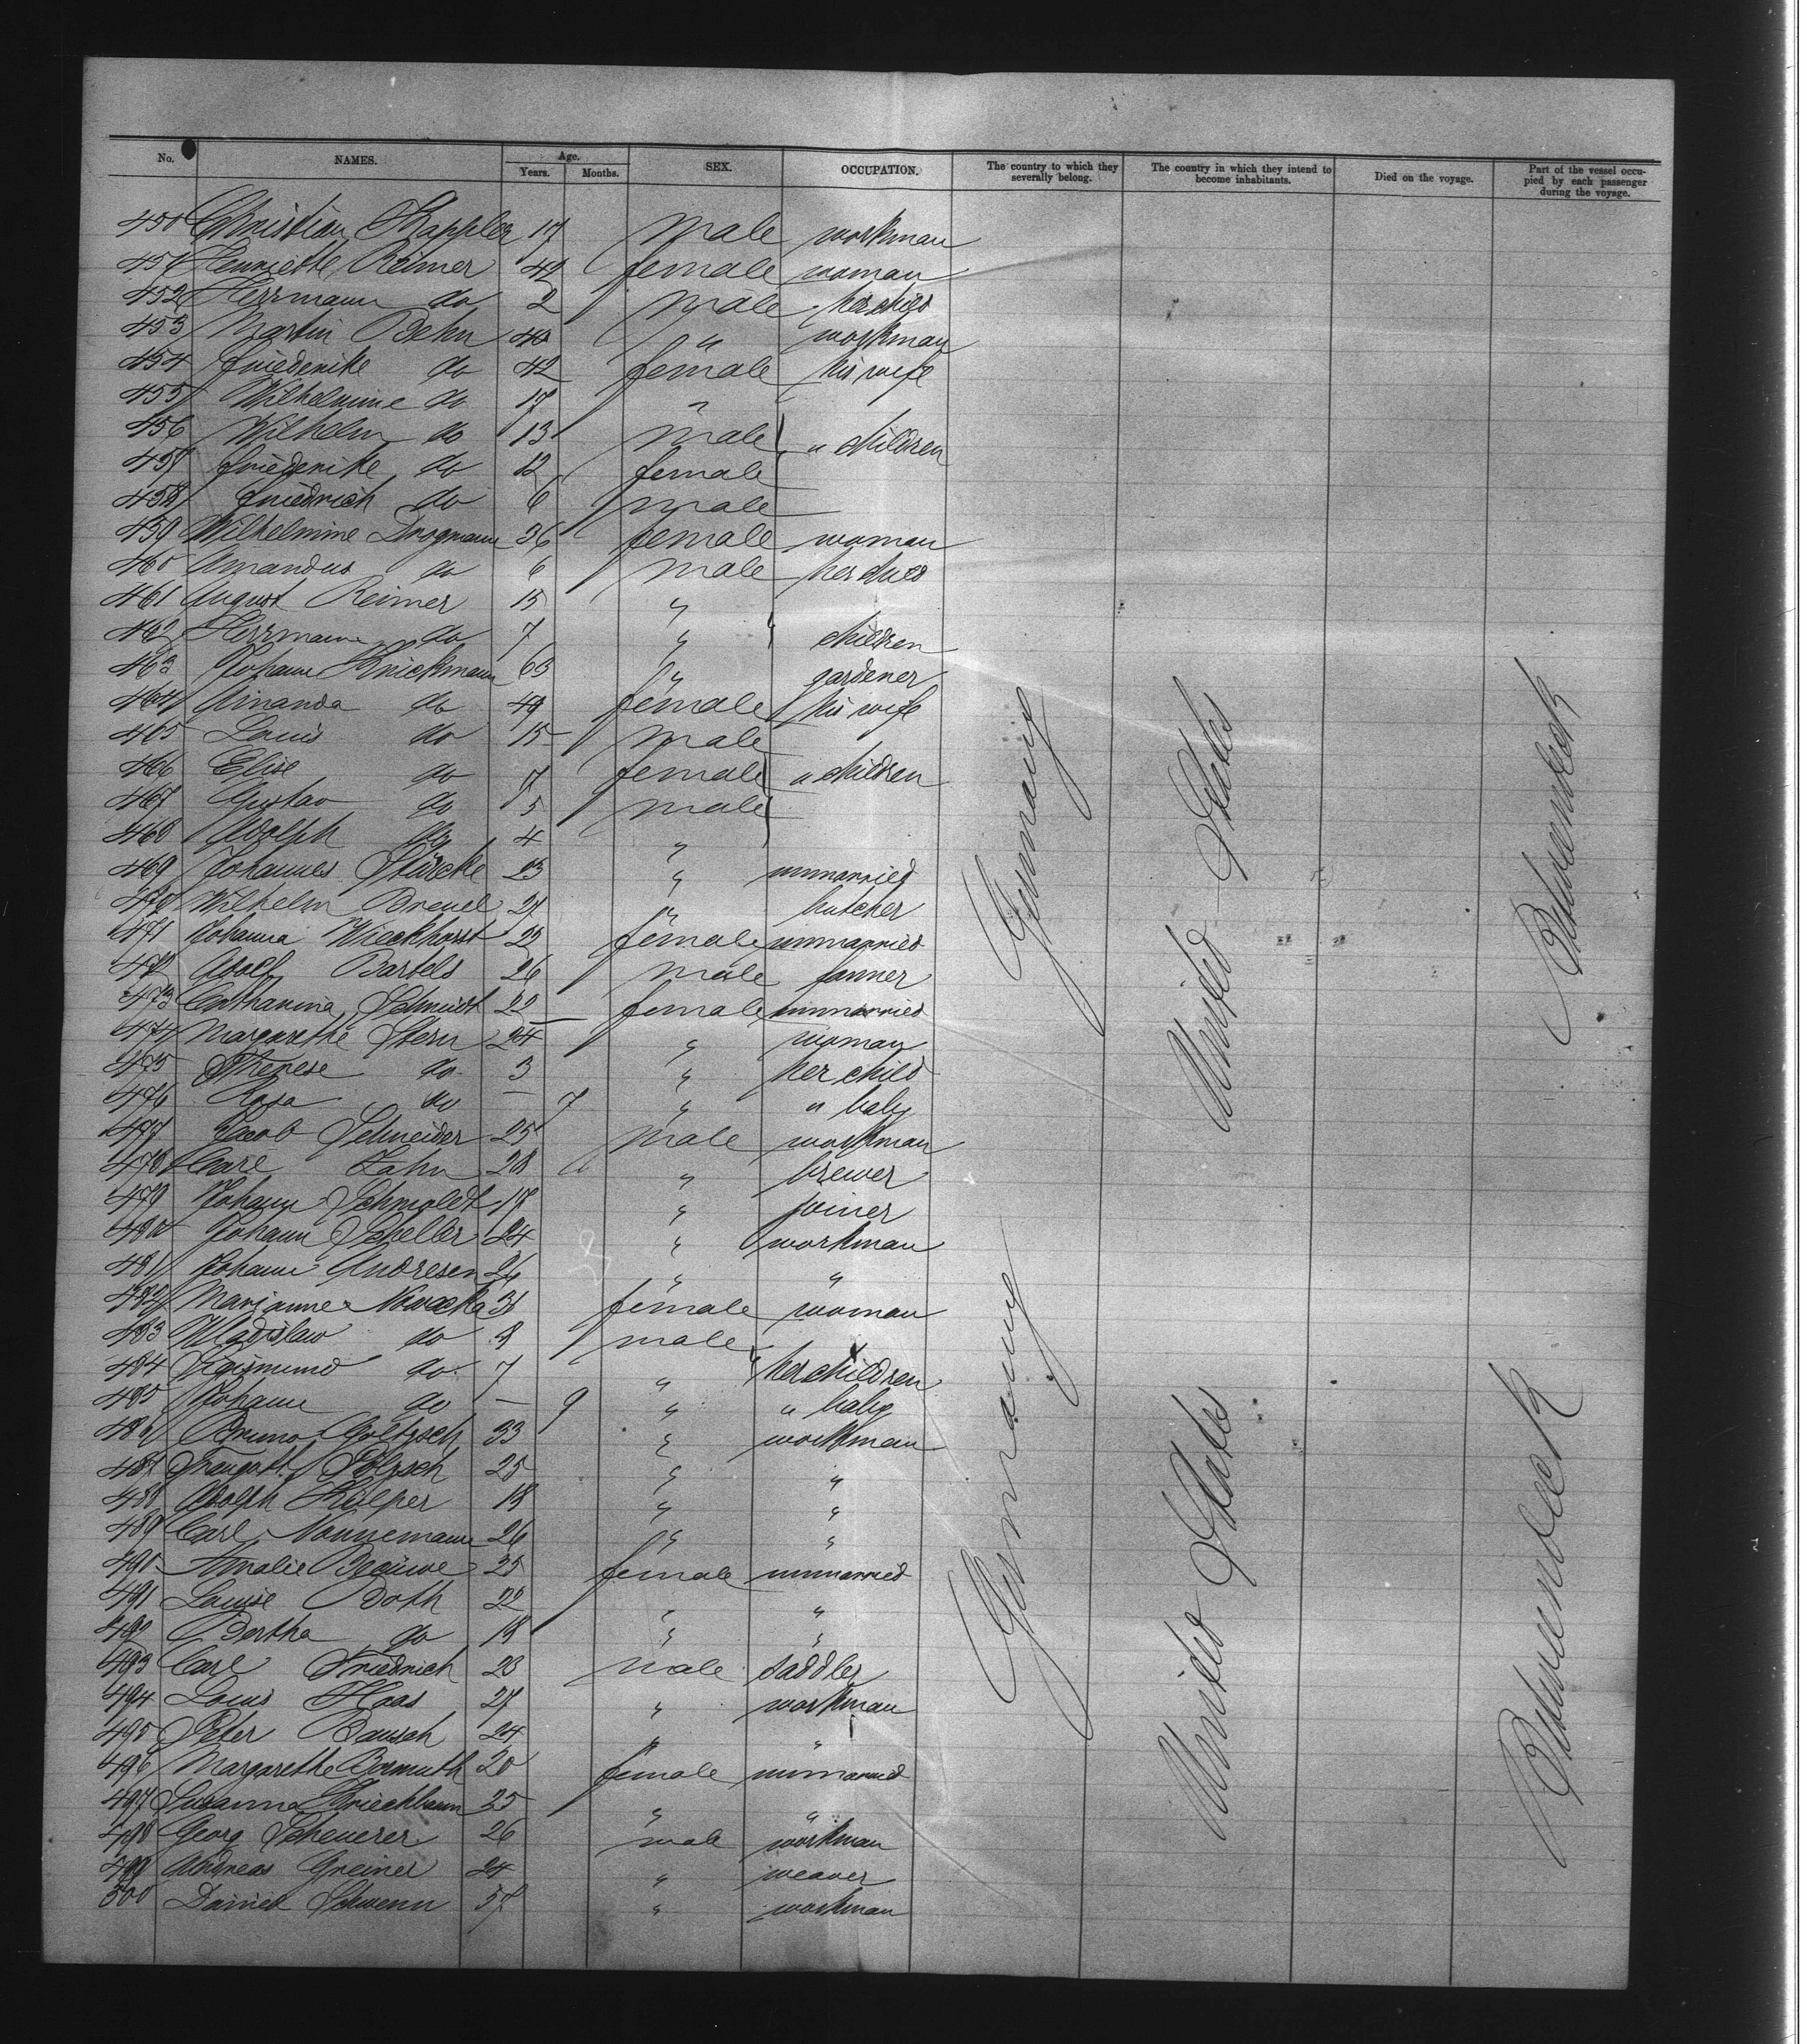 No. NAMES. Age. Years. Months. SEX. OCCUPATION. The country to which they severally belong. The country in which they intend to become inhabitants. Died on the voyage. Part of the vessel occupied by each passenger during the voyage.
450 Christian Kappler 17 male workman
451 Henriette Reimer female woman
452 Herrmann do 2 male her child
453 Martin Behn " workman
454 Friederike do 42 female his wife
455 Wilhelmine do 17 "
456 Wilhelm do 13 male " children
457 Friederike do 12 female
458 Friedrich do 6 male
459 Wilhelmine Drogmann 36 female woman
460 Amandus do 6 male her child
461 August Reimer 15 "
462 Herrmann do 7 " children
463 Johann Knickmann 63 " gardener
464 Amanda do female his wife
465 Louis do 15 male
466 Elise do 7 female " children
467 Gustav do 5 male
468 Adolph do 4 "
469 Johannes Stürcke 23 " unmarried
470 Wilhelm Breuel 27 " butcher
471 Johanna Wieckhorst 22 female unmarried
472 Adolf Bartels 26 male farmer
473 Catharina Schmidt 22 female unmarried
474 Margarethe Stern 24 " woman
475 Therese do 3 " her child
476 Rosa do — 7 " " baby
477 Jacob Schneider 25 male workman
478 Carl Zahn 28 " brewer
479 Johann Schmoldt 17 " joiner
480 Johann Scheller 24 " workman
481 Johann Andresen " "
482 Marianne Nowacka 31 female woman
483 Wladislaw do male
484 Sigismund do 7 " her children
485 Johann do — 9 " " baby
486 Bruno 33 " workman
487 Traugott 25 " "
488 Adolph Külper 18 " "
489 Carl Nonnemann 26 " "
490 Amalie female unmarried
491 Louise Both 22 " "
492 Bertha do 18 " "
493 Carl Friedrich 23 male saddler
494 Louis Haas 27 " workman
495 Peter Bausch 24 " "
496 Margarethe Bormuth 20 female unmarried
497 Susanna Kriechbaum 25 " "
498 Georg Scheuerer 26 male workman
499 Andreas Greiner 24 " weaver
500 Daniel Schwenn 57 " workman
Germany
United States
Betweendeck
Germany
United States
Betweendeck